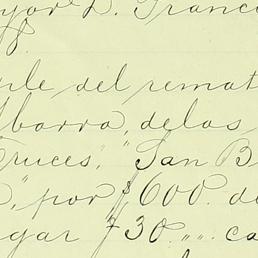 yor D. Franc
8
ile del remat
Ibarra, delas
Cruces," "San B
," por $600. de
gar $30. "." ca